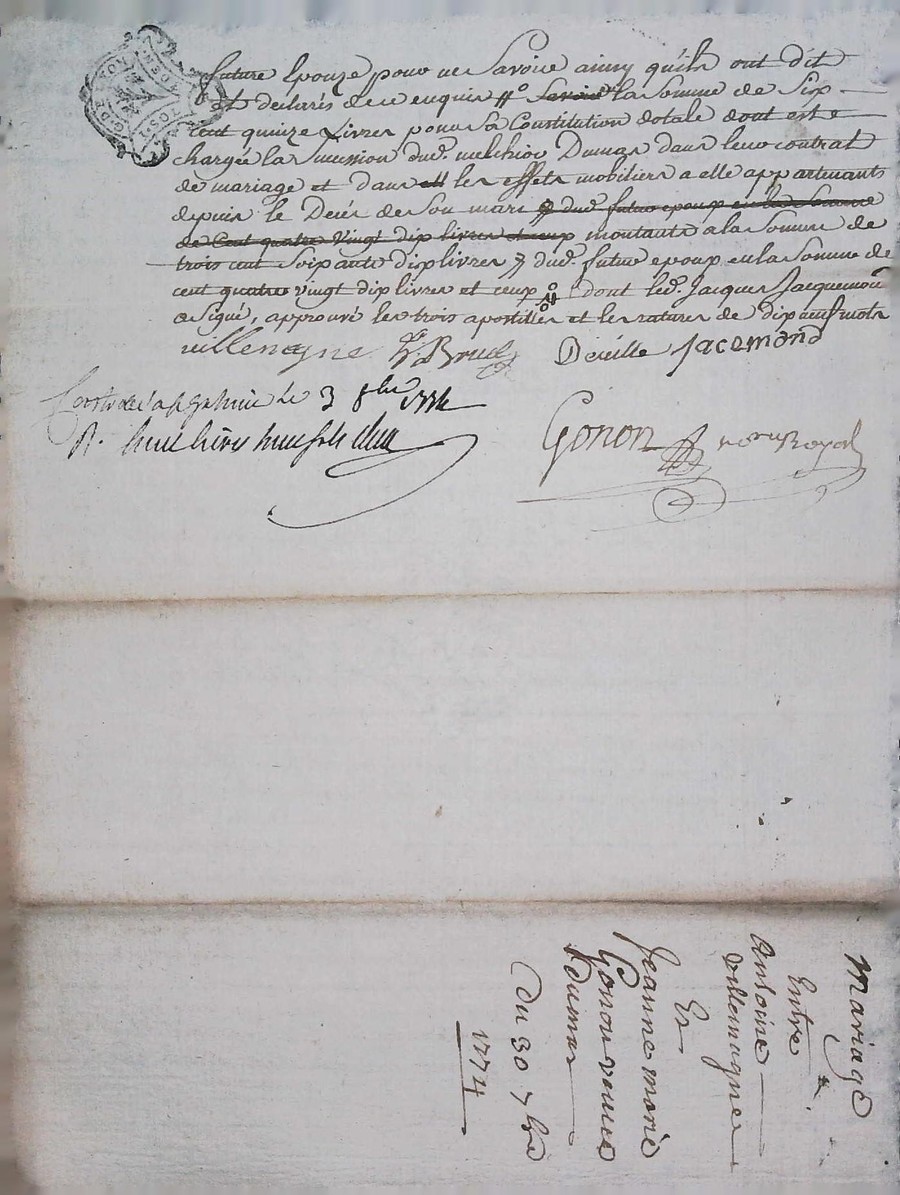 future Epouze pour ses Savoirs ainsy qu'ils ont dit
et declarés de ce enquis # Savoir la Somme de Six
Cent quinze Livres pour Sa Constitution dotale dont est
chargée la Succession dud. melchior Dumas dans leur contrat
de mariage et dans les effets mobiliers a elle appartenants
depuis le Decés de Son mari # dud. futur epoux en la Somme
de Cent quatre vingt dix livres et ceux montants a la Somme de
trois cent Soixante dix livres & dud. futur epoux en la Somme de
cent quatre vingt dix livres et ceux dont led. Jacques Jacquemont
a Signé, approuvé les trois apostilles et les ratures de dix neuf mots
villemagne Bruel Deville Jacemond
le 3 8bre 1774
R.
Gonon no.re Royal
Mariage
Entre
Antoine
villemagne
Et
Jeanne marie
Gonon veuve
dumas
Du 30 7bre
1774